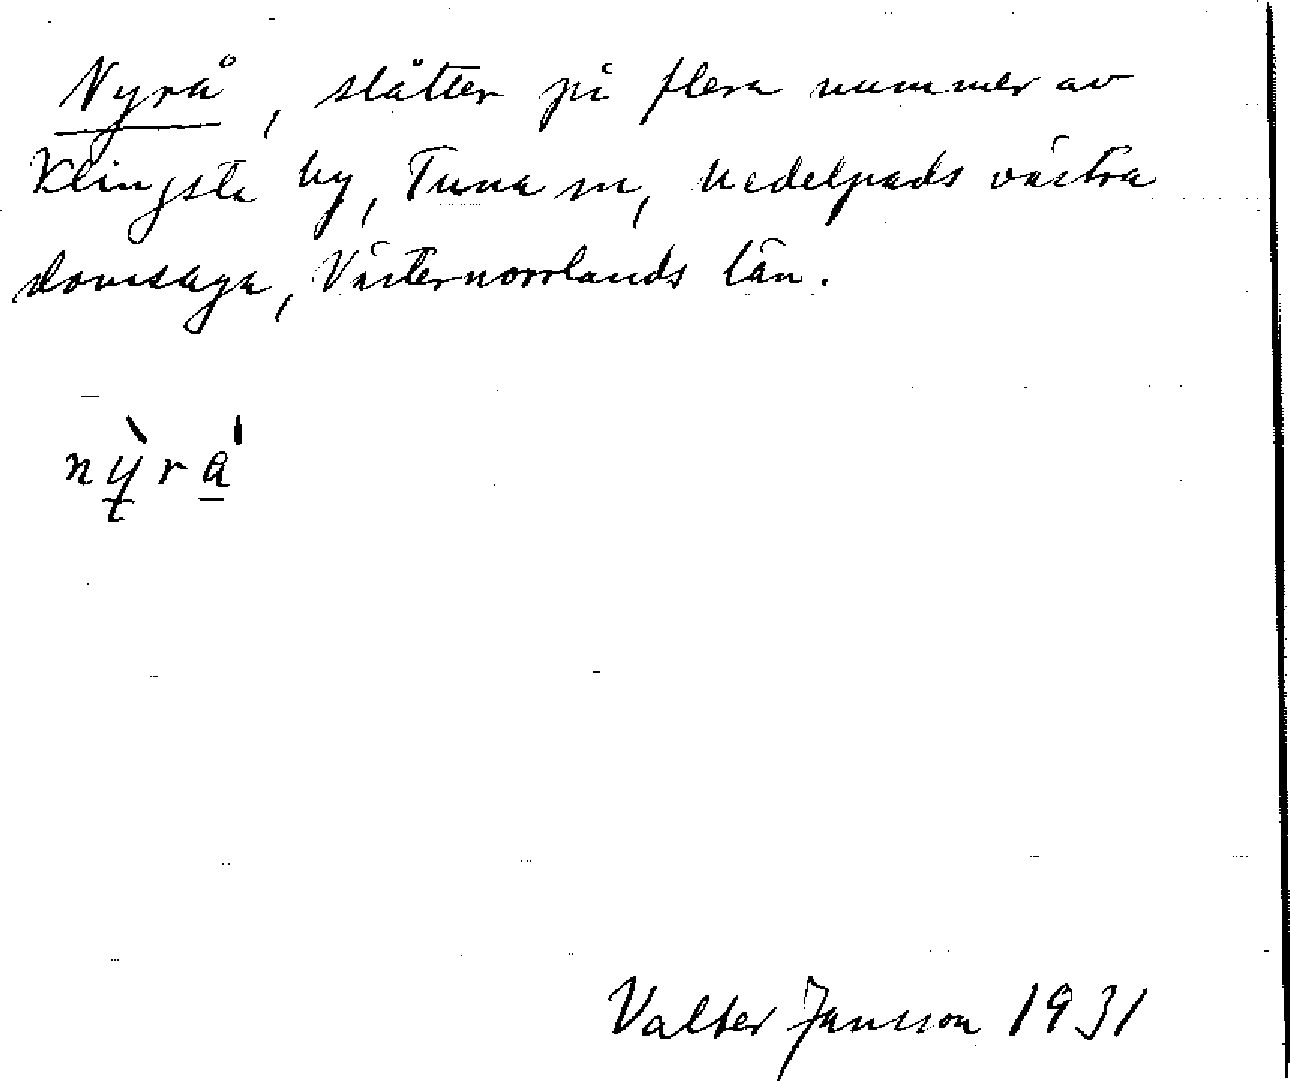 Nyrå, slåtter på flera nummer av
Klingsta by, Tuna sn, Medelpads västra
domsaga, Västernorrlands län.
nỳrå̍
Valter Jansson 1931